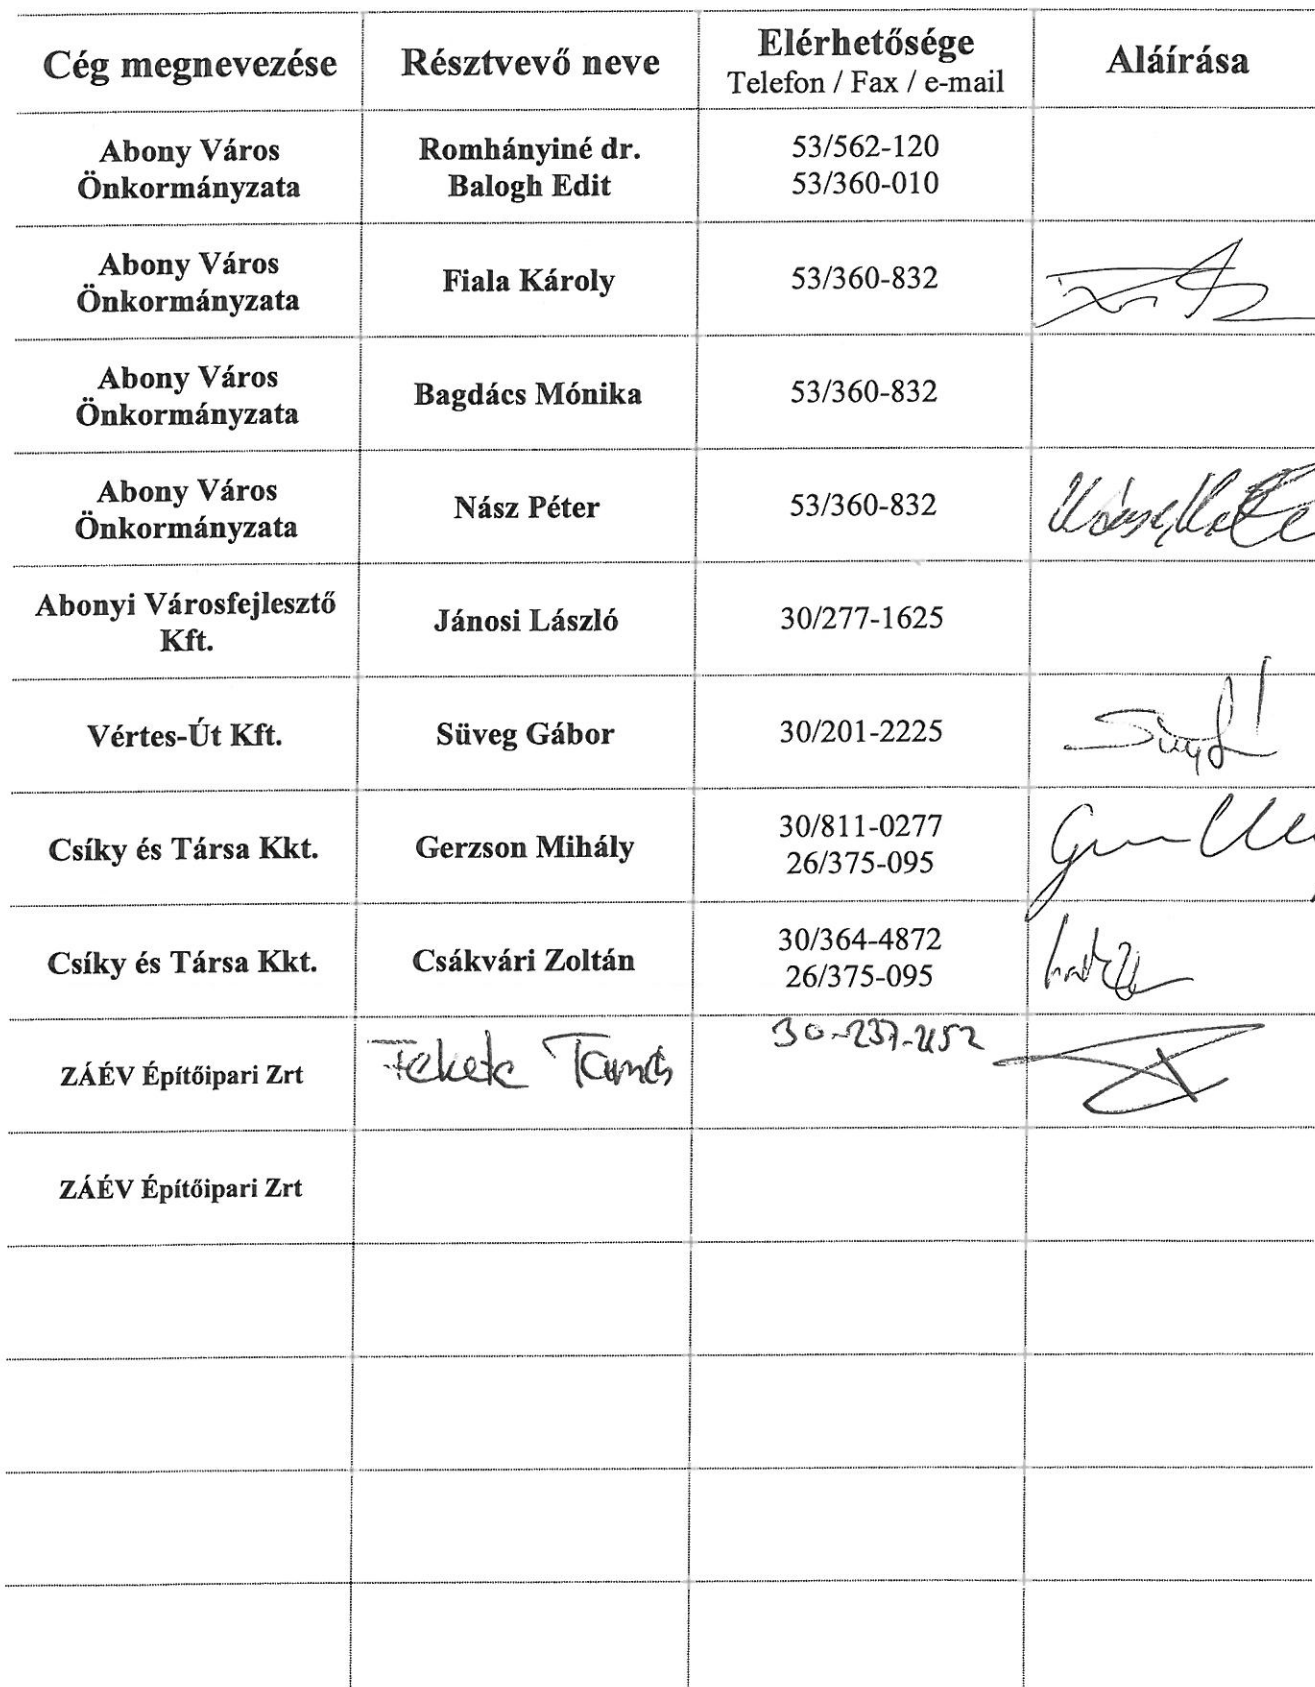 Cég megnevezése
Résztvevő neve
Elérhetősége
Telefon / Fax / e-mail
Aláírása
Abony Város
Önkormányzata
Romhányiné dr.
Balogh Edit
53/562-120
53/360-010
Abony Város
Önkormányzata
Fiala Károly
53/360-832
Abony Város
Önkormányzata
Bagdács Mónika
53/360-832
Abony Város
Önkormányzata
Nász Péter
53/360-832
Abonyi Városfejlesztő
Kft.
Jánosi László
30/277-1625
Vértes-Út Kft.
Süveg Gábor
30/201-2225
Csíky és Társa Kkt.
Gerzson Mihály
30/811-0277
26/375-095
Csíky és Társa Kkt.
Csákvári Zoltán
30/364-4872
26/375-095
ZÁÉV Építőipari Zrt
Fekete Tamás
ZÁÉV Építőipari Zrt